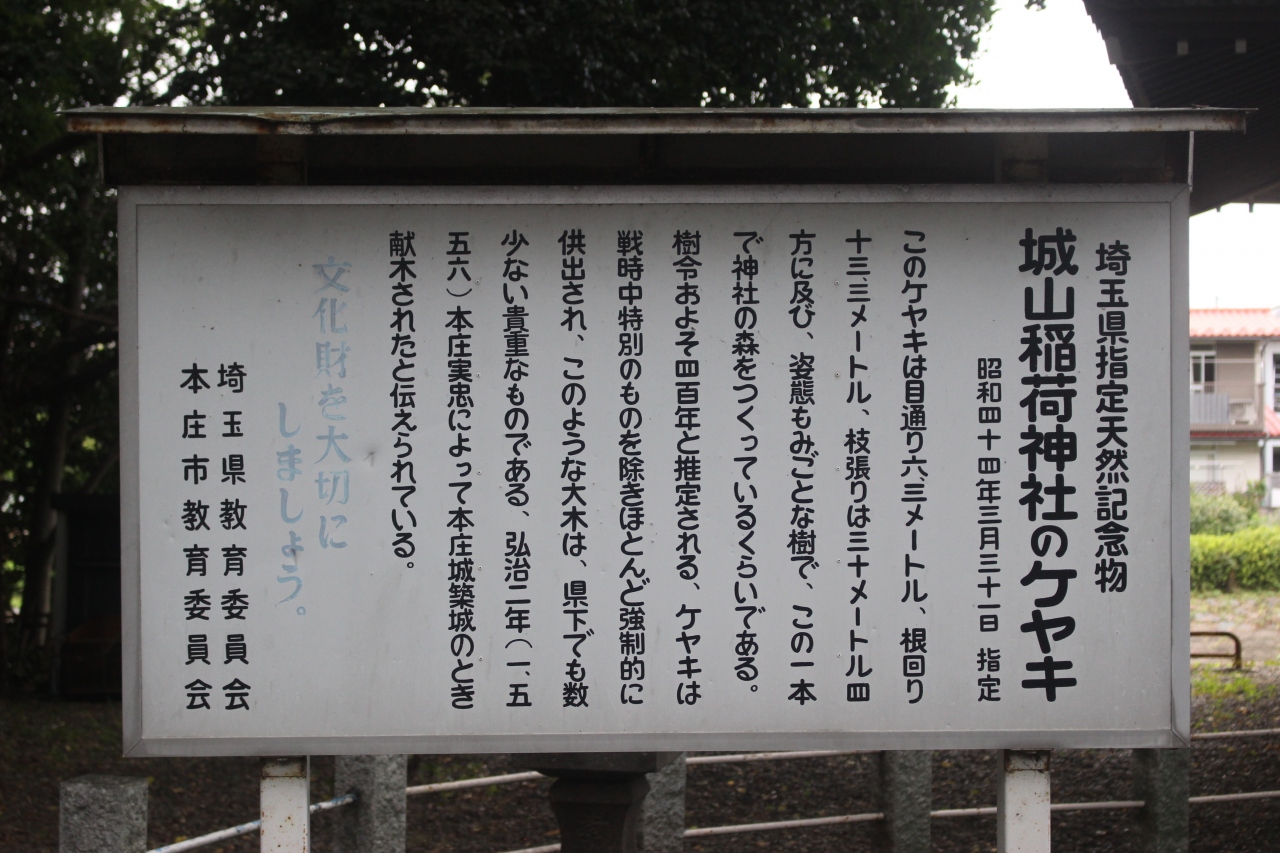 埼玉県指定天然記念物
城山稲荷神社のケヤキ
昭和四十四年三月三十一日 指定
このケヤキは目通り六、三メートル、根回り
十三、三メートル、枝張りは三十メートル四
方に及び、姿態もみごとな樹で、この一本
で神社の森をつくっているくらいである。
樹令およそ四百年と推定される、ケヤキは
戦時中特別のものを除きほとんど強制的に
供出され、このような大木は、県下でも数
少ない貴重なものである、弘治二年(一、五
五六)本庄実忠によって本庄城築城のとき
献木されたと伝えられている。
文化財を大切に
しましょう。
埼玉県教育委員会
本庄市教育委員会